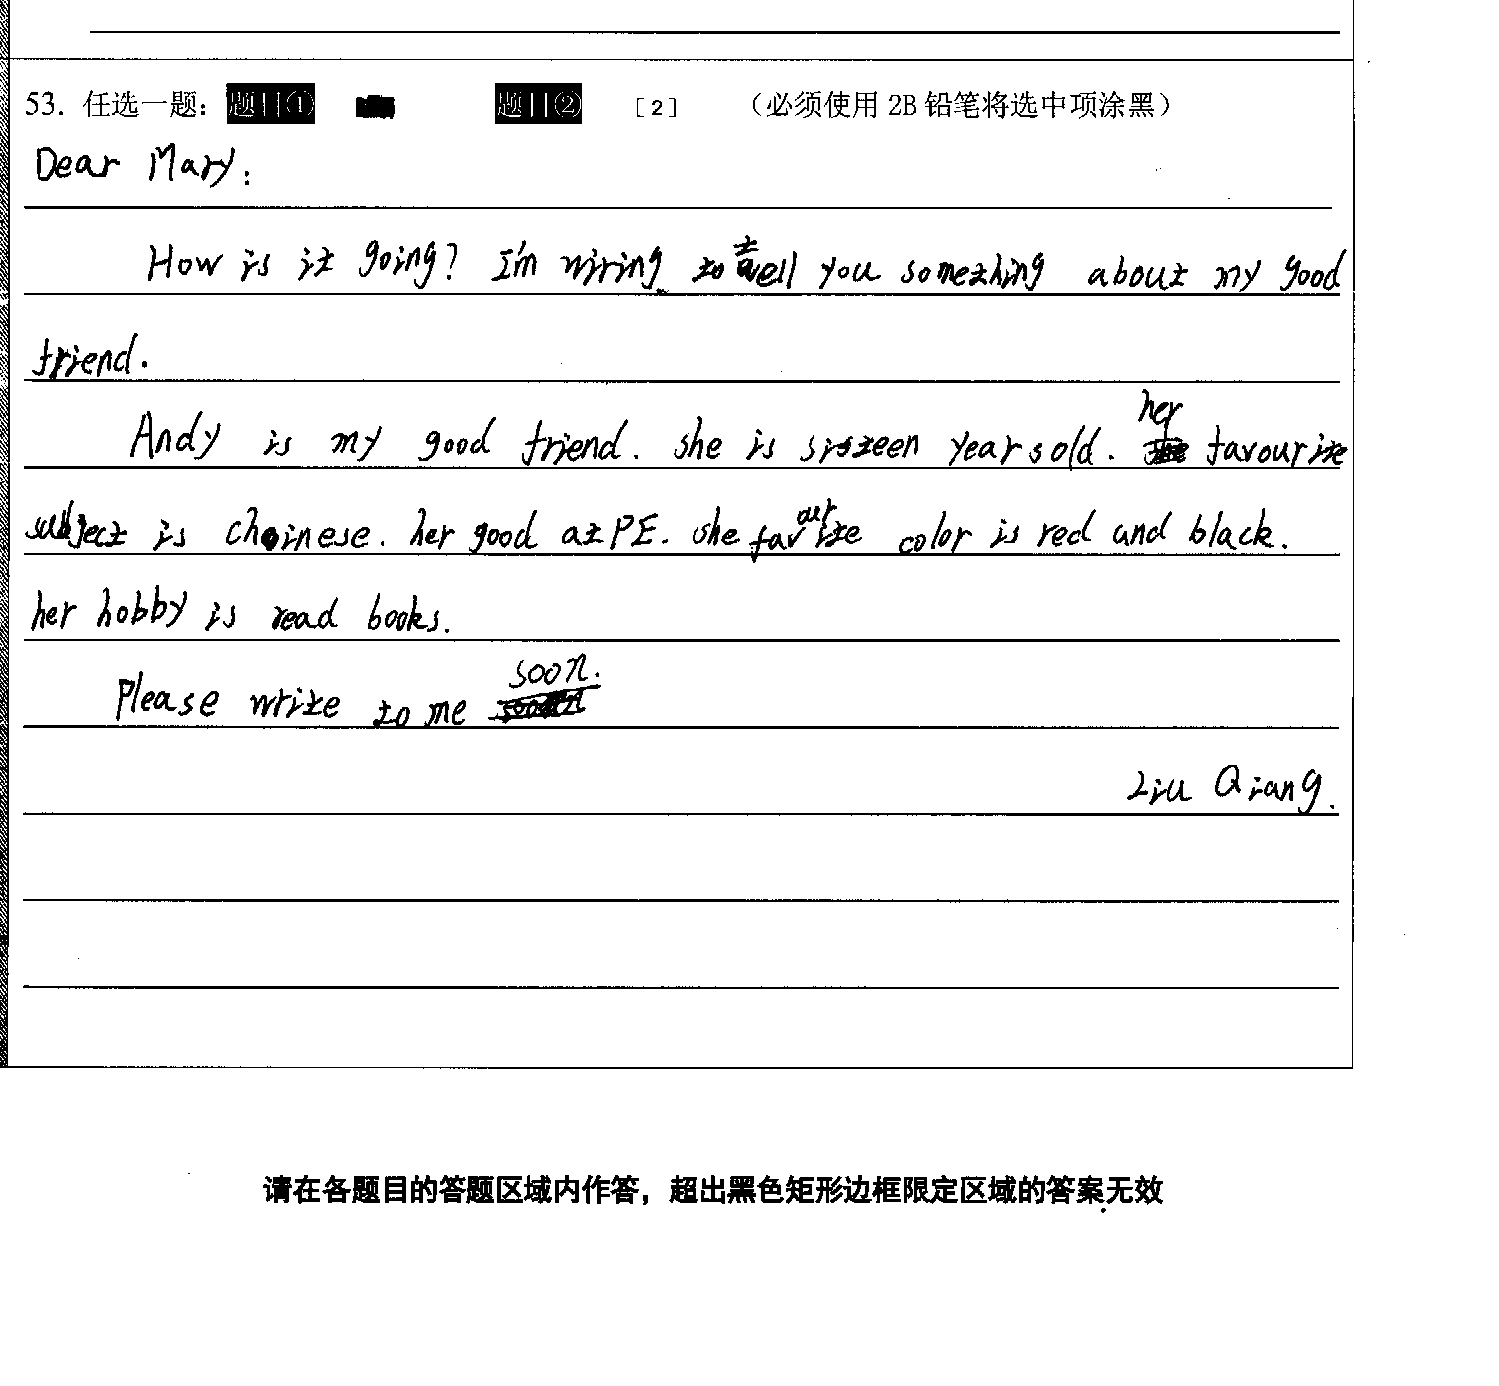 53. 任选一题： 题目① 题目② [2] （必须使用 2B 铅笔将选中项涂黑）
Dear Mary:
How is it going? I'm wiring to tell you something about my good
friend.
Andy is my good friend. she is sixteen years old. her favourite
subject is Choinese. her good at PE. she favourite color is red and black.
her hobby is read books.
Please write to me soon.
Liu Qiang.
请在各题目的答题区域内作答，超出黑色矩形边框限定区域的答案无效